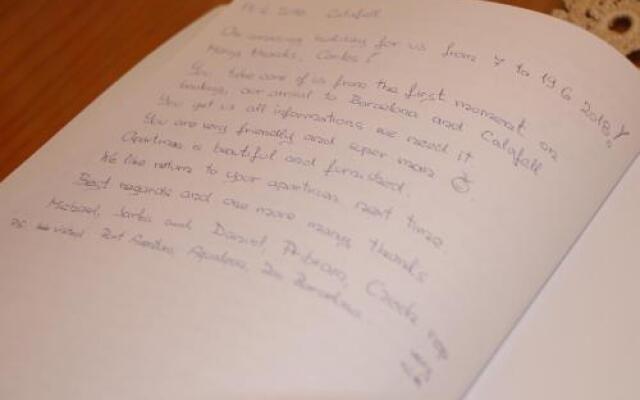 Calafell
On amazing holiday for us from 7 to 19 6 2018
Many thanks, Carlos!
You take care of us from the first moment on
bookings, our arrival to Barcelona and Calafell
You get us all informations we need it.
You are very friendly and super man
Apartman is beautiful and furnished.
We like return to your apartman next time.
Best regards and one more many thanks
Michael, and Daniel, Czech rep
PS We visited Port Aventura, Aqualeon, Zoo Barcelona